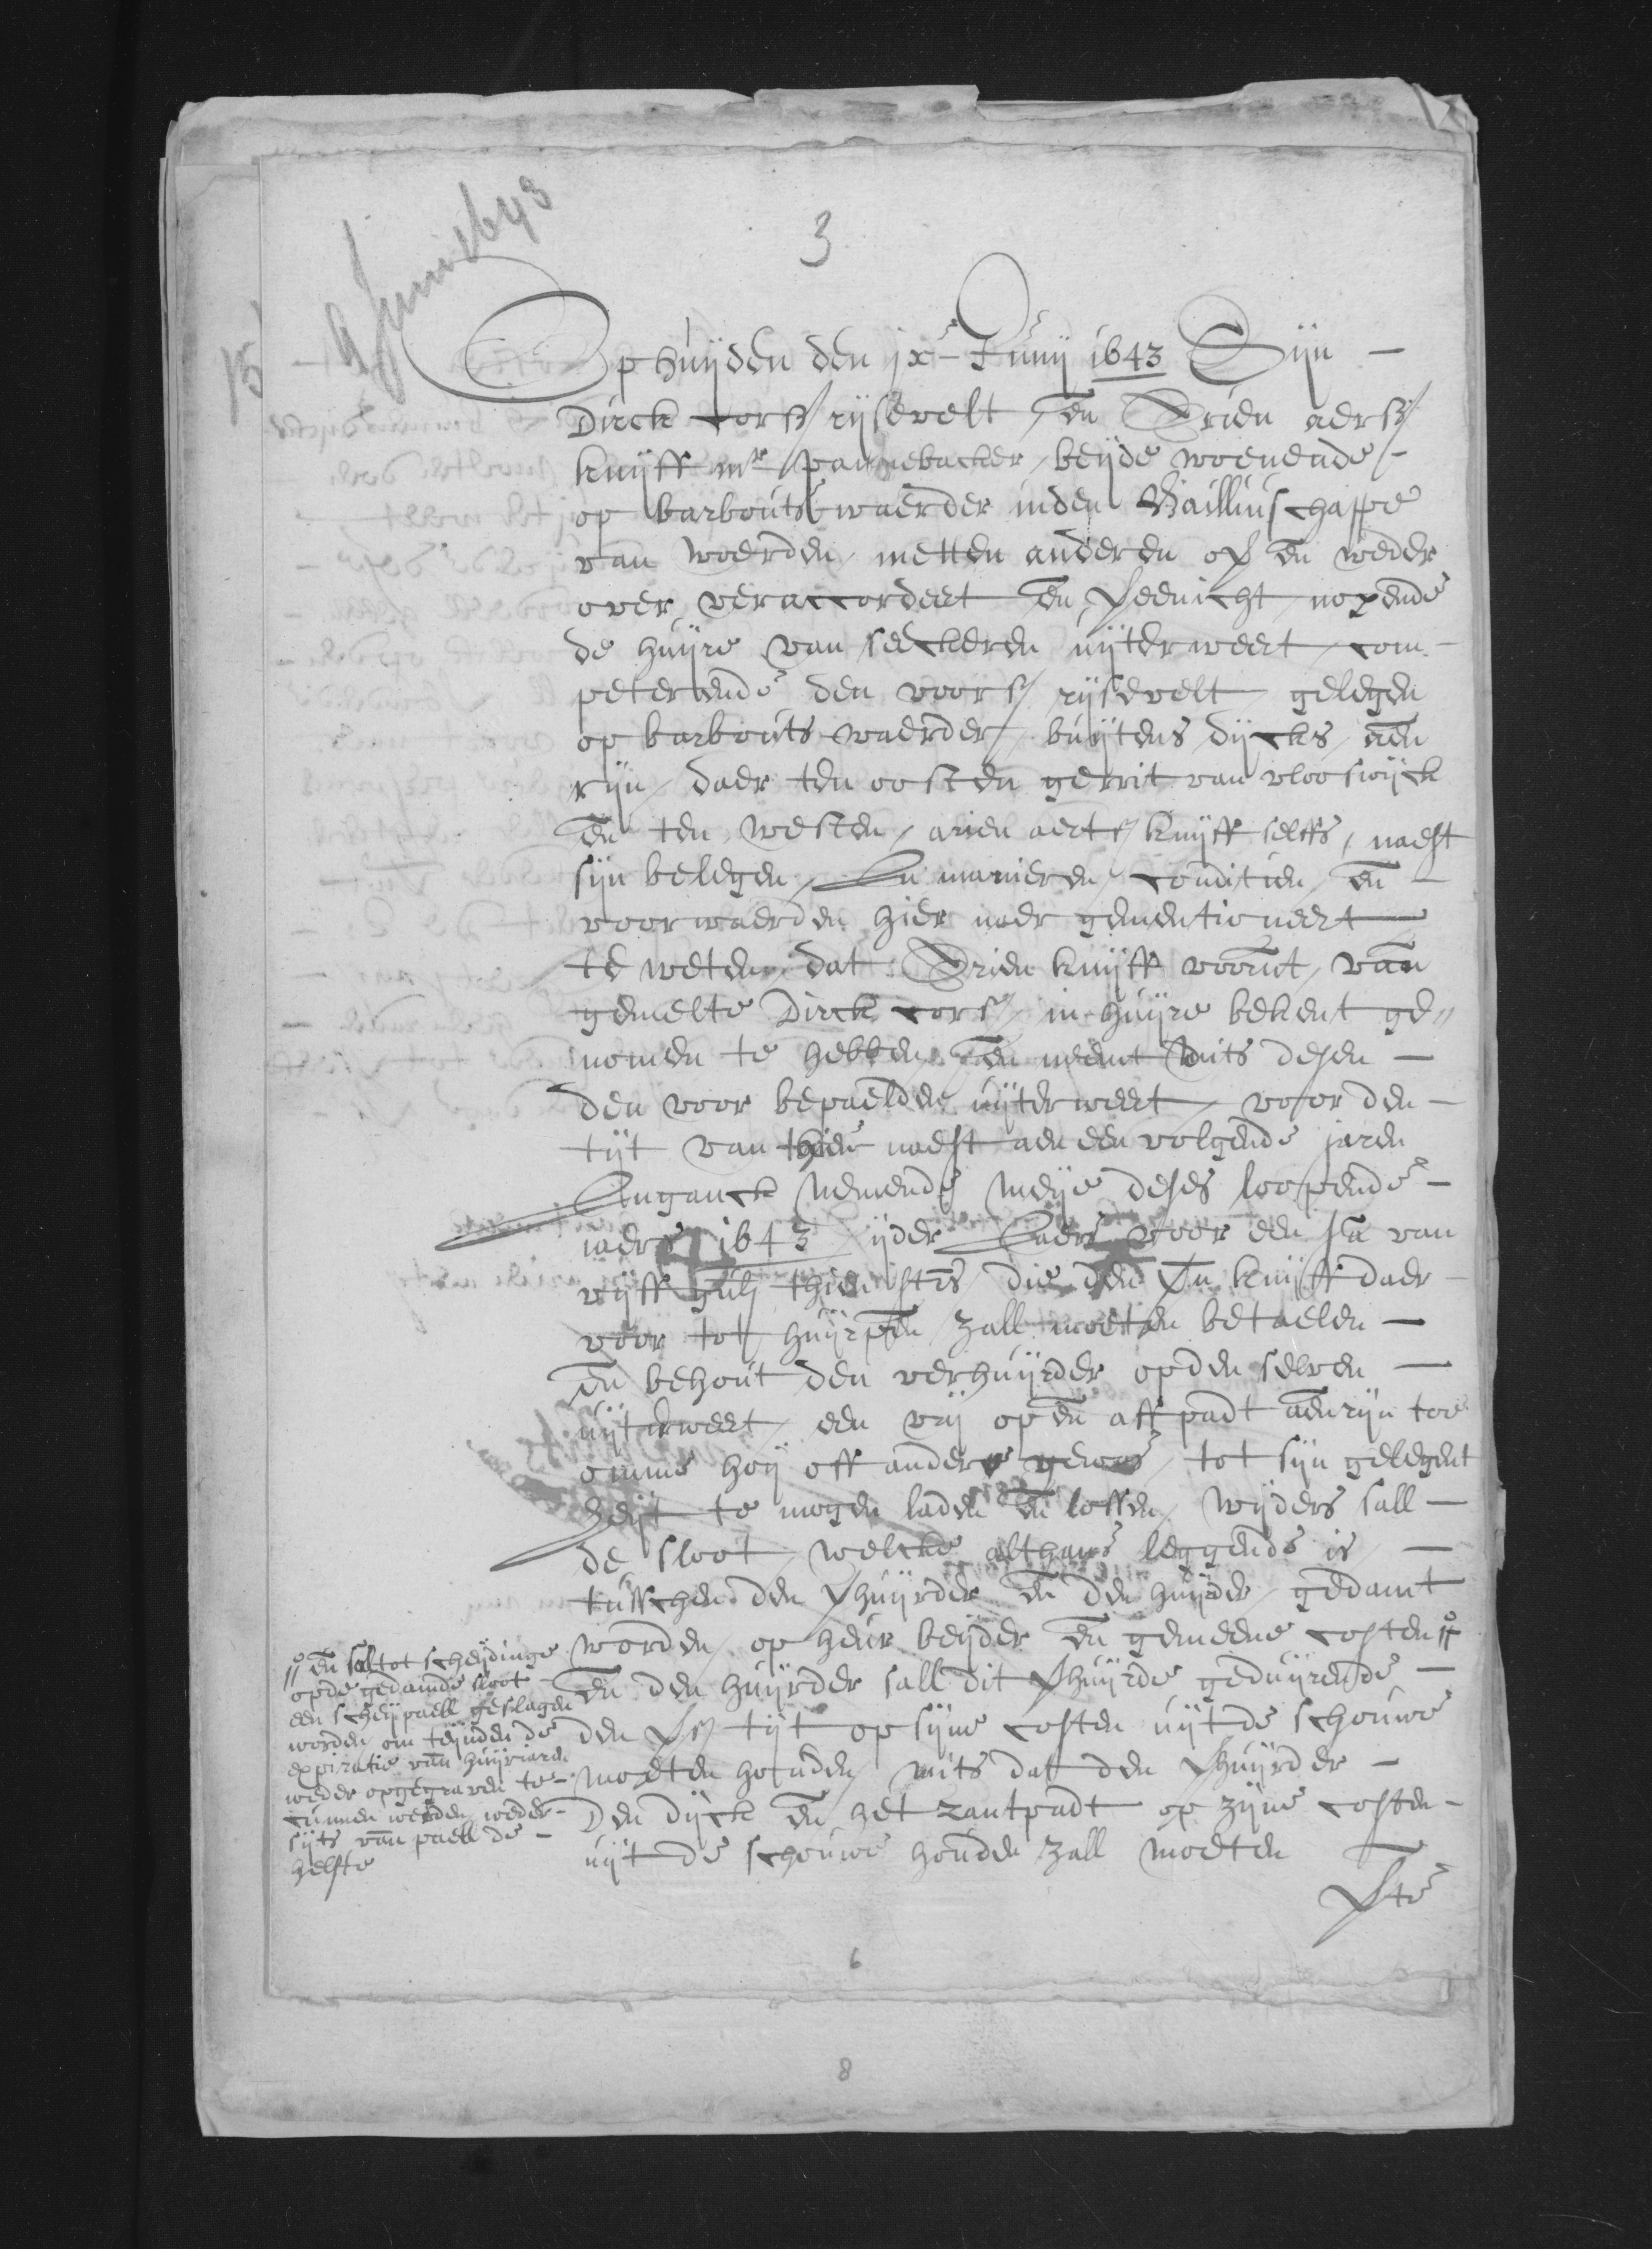 9 Juni 1643
3
15
Op huijden den jxe Junij 1643 Sijn
Dirck cors/ rijsevelt, en Arien aerss/
knijff mr pannebacker, beijde woenende
op barbouts waerder inden Bailliuschappe
van woerden, metten anderen op en weder
over veraccordeert en vereenicht nopende
de huijre van seeckeren uijterweert, com-
peterende den voors/ rijsevelt, gelegen
op barbouts waerder, buijtens dijcks, aen
rijn, daer ten oosten gerrit van vlooswijck
en ten westen, arien aerts/ knijff selffs, naest
sijn belegen, In manieren, conditien, en
voorwaerden hier naer gementioneert
te weten, dat Arien knijff voornt, van
gemelte Dirck cors/ in huijre bekent ge„
nomen te hebben, en neemt mits desen
den voor bepaelden uijterweert, voor den
tijt van thien naest aen een volgende jaren
Inganck nemende meije deses loopende
jaers 1643, ijder Jaers voor een sa van
vijff gulj thien stvs, die den vn knijff daer
voor tot huijrpen zall moeten betaelen
en behout den verhuijrder opden selven
uijterweert, een vrij op en aff padt aen rijn toe
omme hoij off andere gewas, tot sijn gelegent
heijt te mogen laden en lossen, wijders sall
de sloot, welcke althans leggende is
tusschen den vhuijrder en den huijrder, gedamt
worden, op heur beijder en gemeene costen //
en den huijrder sall dit vhuijrde geduijrende
den vs/ tijt op sijne costen uijt de schouwe
moeten houden, mits dat den vhuijrder
Den dijck en het zantpadt op zijne costen
uijt de schouwe houden zall moeten
// en sal tot scheijdinge
opde gedamde sloot
een scheijpaell geslagen
worden om teijnden de
expiratie van huijrjaren
weder opgegraven te
cunnen werden weder-
sijts van paell de
helfte
6
8